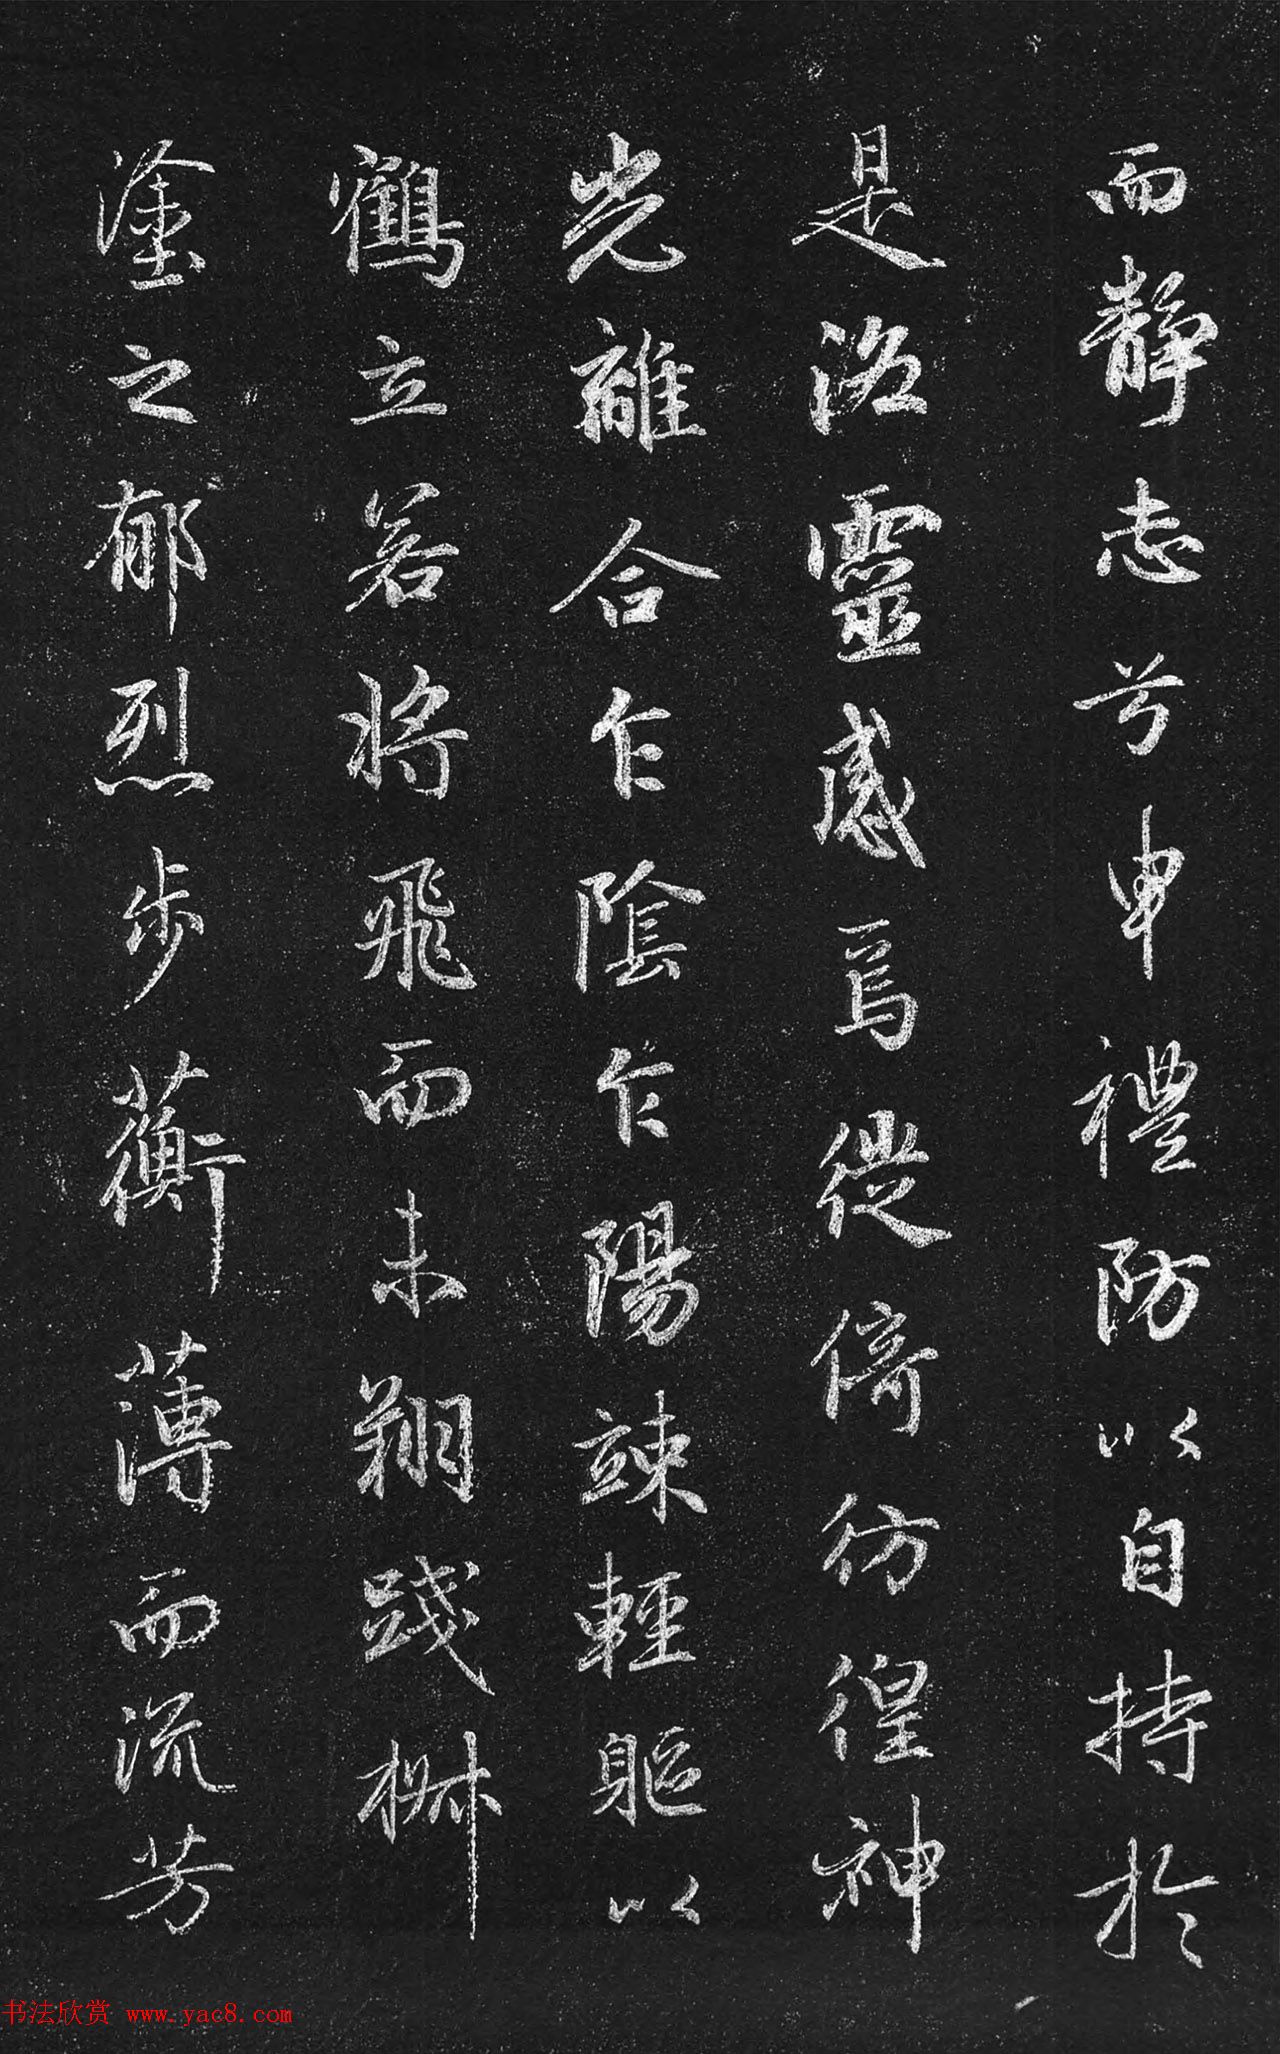 而靜志兮申禮防以自持於
是洛靈感焉徙倚彷徨神
光離合乍陰乍陽竦輕軀以
鶴立若將飛而未翔踐椒
塗之郁烈步蘅薄而流芳
书法欣赏 www.yac8.com